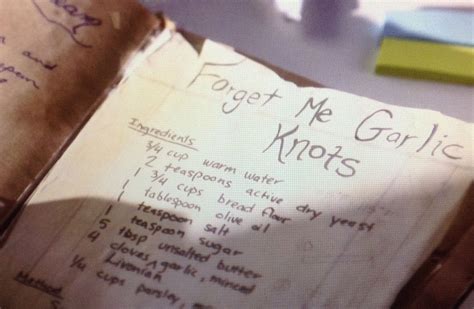 and
spoon
Forget Me Garlic
Knots
Ingredients
3/4 cup warm water
2 teaspoons active dry yeast
1 3/4 cups bread flour
1 tablespoon olive oil
1 teaspoon salt
1 teaspoon sugar
5 tbsp unsalted butter
4 cloves, garlic, minced
Livonian
1/4 cups parsley,
Method